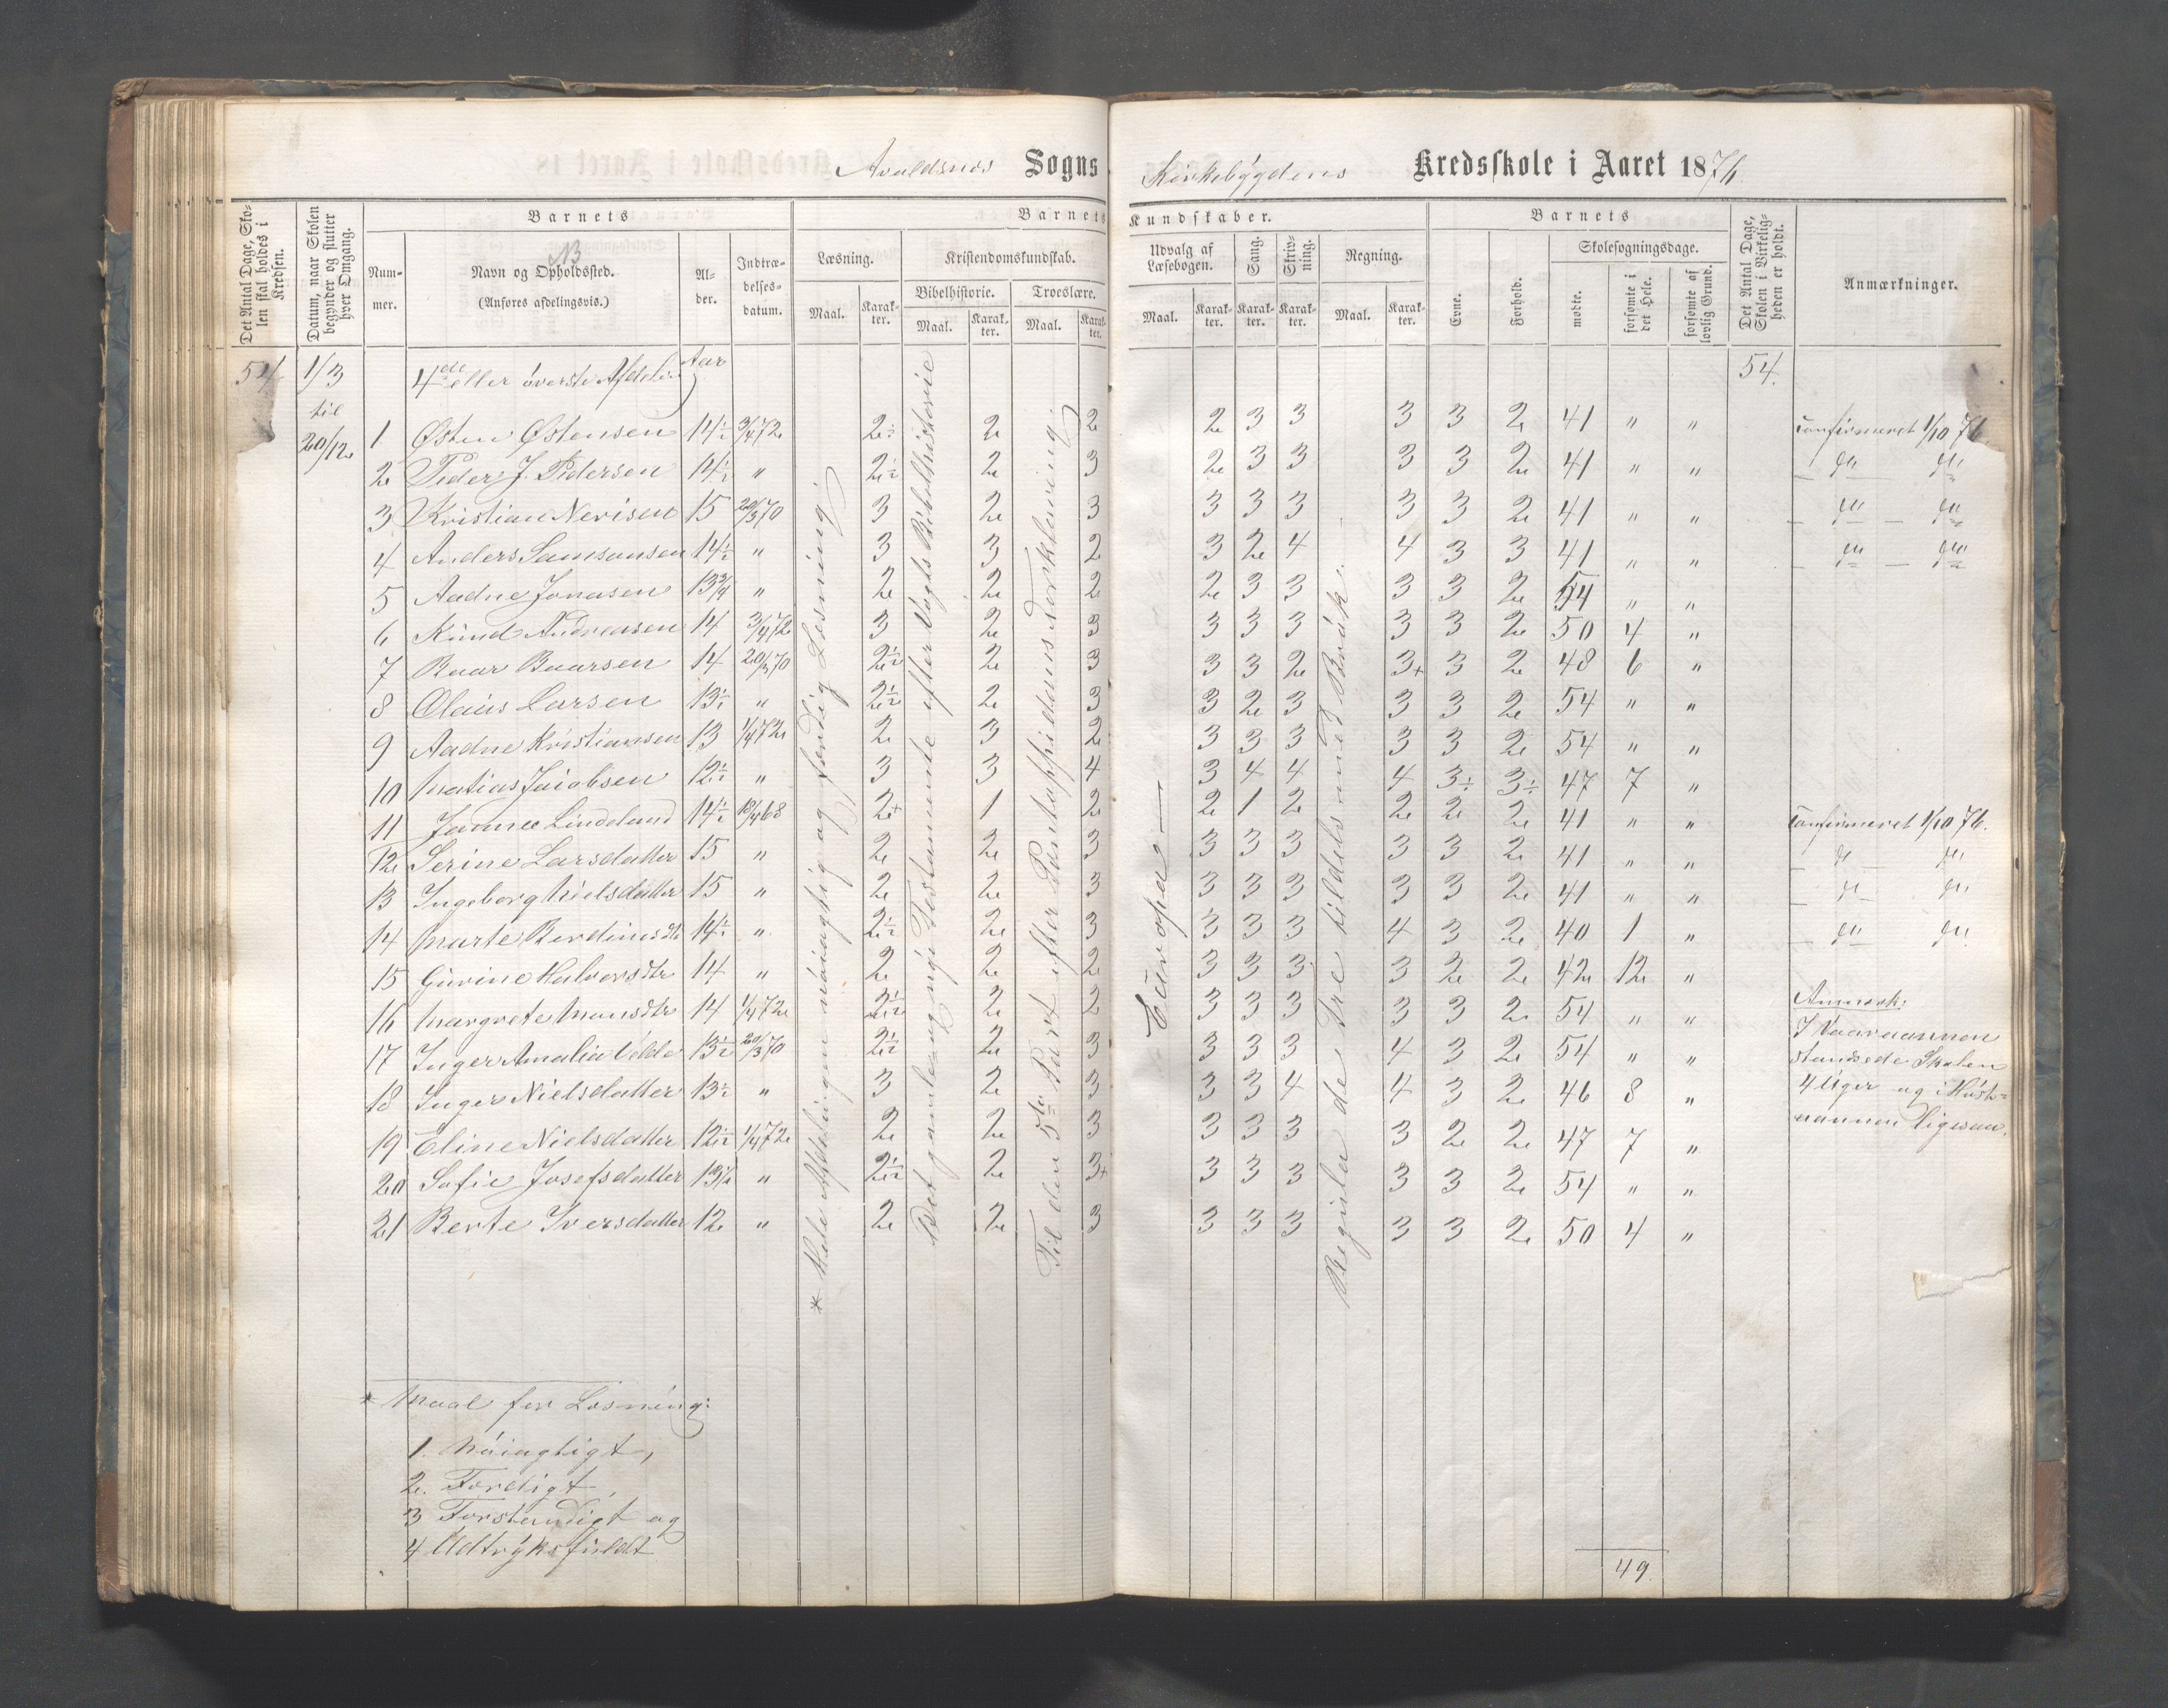 Avaldsnes Sogns Kirkebygdens Kredsskole i Aaret 1876.
Det Antal Dage, Skolen skal holdes i Kredsen.
Datum, naar Skolen begynder og slutter hver Omgang.
Barnets
Nummer.
Navn og Opholdssted.
(Anføres afdelingsvis.)
Alder.
Indtrædelsesdatum.
Barnets Kundskaber.
Læsning.
Maal. Karakter.
Kristendomskundskab.
Bibelhistorie. Troeslære.
Maal. Karakter. Maal. Karakter.
Udvalg af Læsebogen.
Maal. Karakter.
Sang. Karakter.
Skrivning. Karakter.
Regning.
Maal. Karakter.
Barnets
Evne. Forhold.
Skolesøgningsdage.
mødte. forsømte i det Hele. forsømte af lovlig Grund.
Det Antal Dage, Skolen i Virkeligheden er holdt.
Anmærkninger.
54 1/3 til 20/12
4de eller øverste Afdeling Aar 54.
1 Østen Østensen 14½ 3/4 72 2÷ 2 2 2 3 3 3 3 2 41 " " Confirmeret 1/10 76.
2 Peder J. Pedersen 14½ " 2½ 2 3 2 3 3 3 3 2 41 " " — do — do
3 Kristian Nerisen 15 20/3 70 3 2 3 3 3 3 3 3 2 41 " " — do — do
4 Anders Samsonsen 14½ " 3 3 2 3 2 4 4 3 3 41 " " — do — do
5 Aadne Jonasen 13¾ " 2 2 2 2 3 3 3 3 2 54 " "
6 Knud Andreasen 14 3/4 72 3 2 3 3 3 3 3 3 2 50 4 "
7 Baar Baarsen 14 20/3 70 2½ 2 3 3 3 2 3+ 3 2 48 6 "
8 Olaus Larsen 13½ " 2½ 2 3 3 2 3 3 3 2 54 " "
9 Aadne Kristiansen 13 1/4 72 2 3 2 3 3 3 3 3 2 54 " "
10 Matias Jacobsen 12½ " 3 3 4 3 4 4 4 3÷ 3÷ 47 7 "
11 Janna Lindeland 14½ 18/4 68 2+ 1 2 2 1 2 2 2 2 41 " " Confirmeret 1/10 76.
12 Serine Larsdatter 15 " 2 2 3 3 3 3 3 3 2 41 " " — do — do
13 Ingeborg Nielsdatter 15 " 2 2 3 3 3 3 3 3 2 41 " " — do — do
14 Marte Berdinesdtr 14½ " 2½ 2 3 3 3 3 4 3 2 40 1 " — do — do
15 Gurine Halvorsdtr 14 " 2 2 2 3 3 3 3 2 2 42 12 "
16 Margrete Monsdtr 14 1/4 72 2½ 2 2 3 3 3 3 3 2 54 " "
17 Inger Amalia Velde 13½ 20/3 70 2½ 2 3 3 3 3 4 3 2 54 " "
18 Inger Nielsdatter 13½ " 3 2 3 3 3 4 4 3 2 46 8 "
19 Eline Nielsdatter 12½ 1/4 72 2 2 3 3 3 3 3 2 2 47 7 "
20 Sofie Josefsdatter 13¼ " 2½ 2 3+ 3 3 3 3 3 2 54 " "
21 Berte Iversdatter 12 " 2 2 3 3 3 3 3 3 2 50 4 "
* Hele Afdelingen nöiagtig og færdig Læsning.
Det gamle og nye Testamente efter Vogts Bibelhistorie
Til den 5te Part efter Pontoppidans Forklaring.
Europa —
Regula de Tre tildels med Brök.
Anmærk:
I Vaaraannen
standsede Skolen
4 Uger og i Höst=
aannen ligesaa.
* Maal for Læsning:
1. Nöiagtigt,
2. Færdigt,
3 Forstandigt og
4 Udtryksfuldt
49.